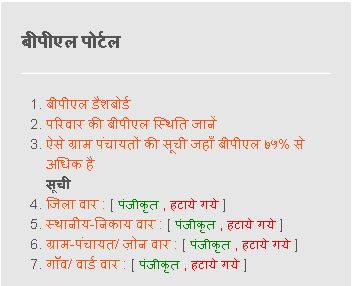 बीपीएल पोर्टल
1. बीपीएल डैशबोर्ड
2. परिवार की बीपीएल स्थिति जानें
3. ऐसे ग्राम पंचायतों की सूची जहाँ बीपीएल ७५% से
अधिक है
सूची
4. जिला वार : [ पंजीकृत , हटाये गये ]
5. स्थानीय-निकाय वार : [ पंजीकृत , हटाये गये ]
6. ग्राम-पंचायत/ ज़ोन वार : [ पंजीकृत , हटाये गये ]
7. गाँव/ वार्ड वार : [ पंजीकृत , हटाये गये ]